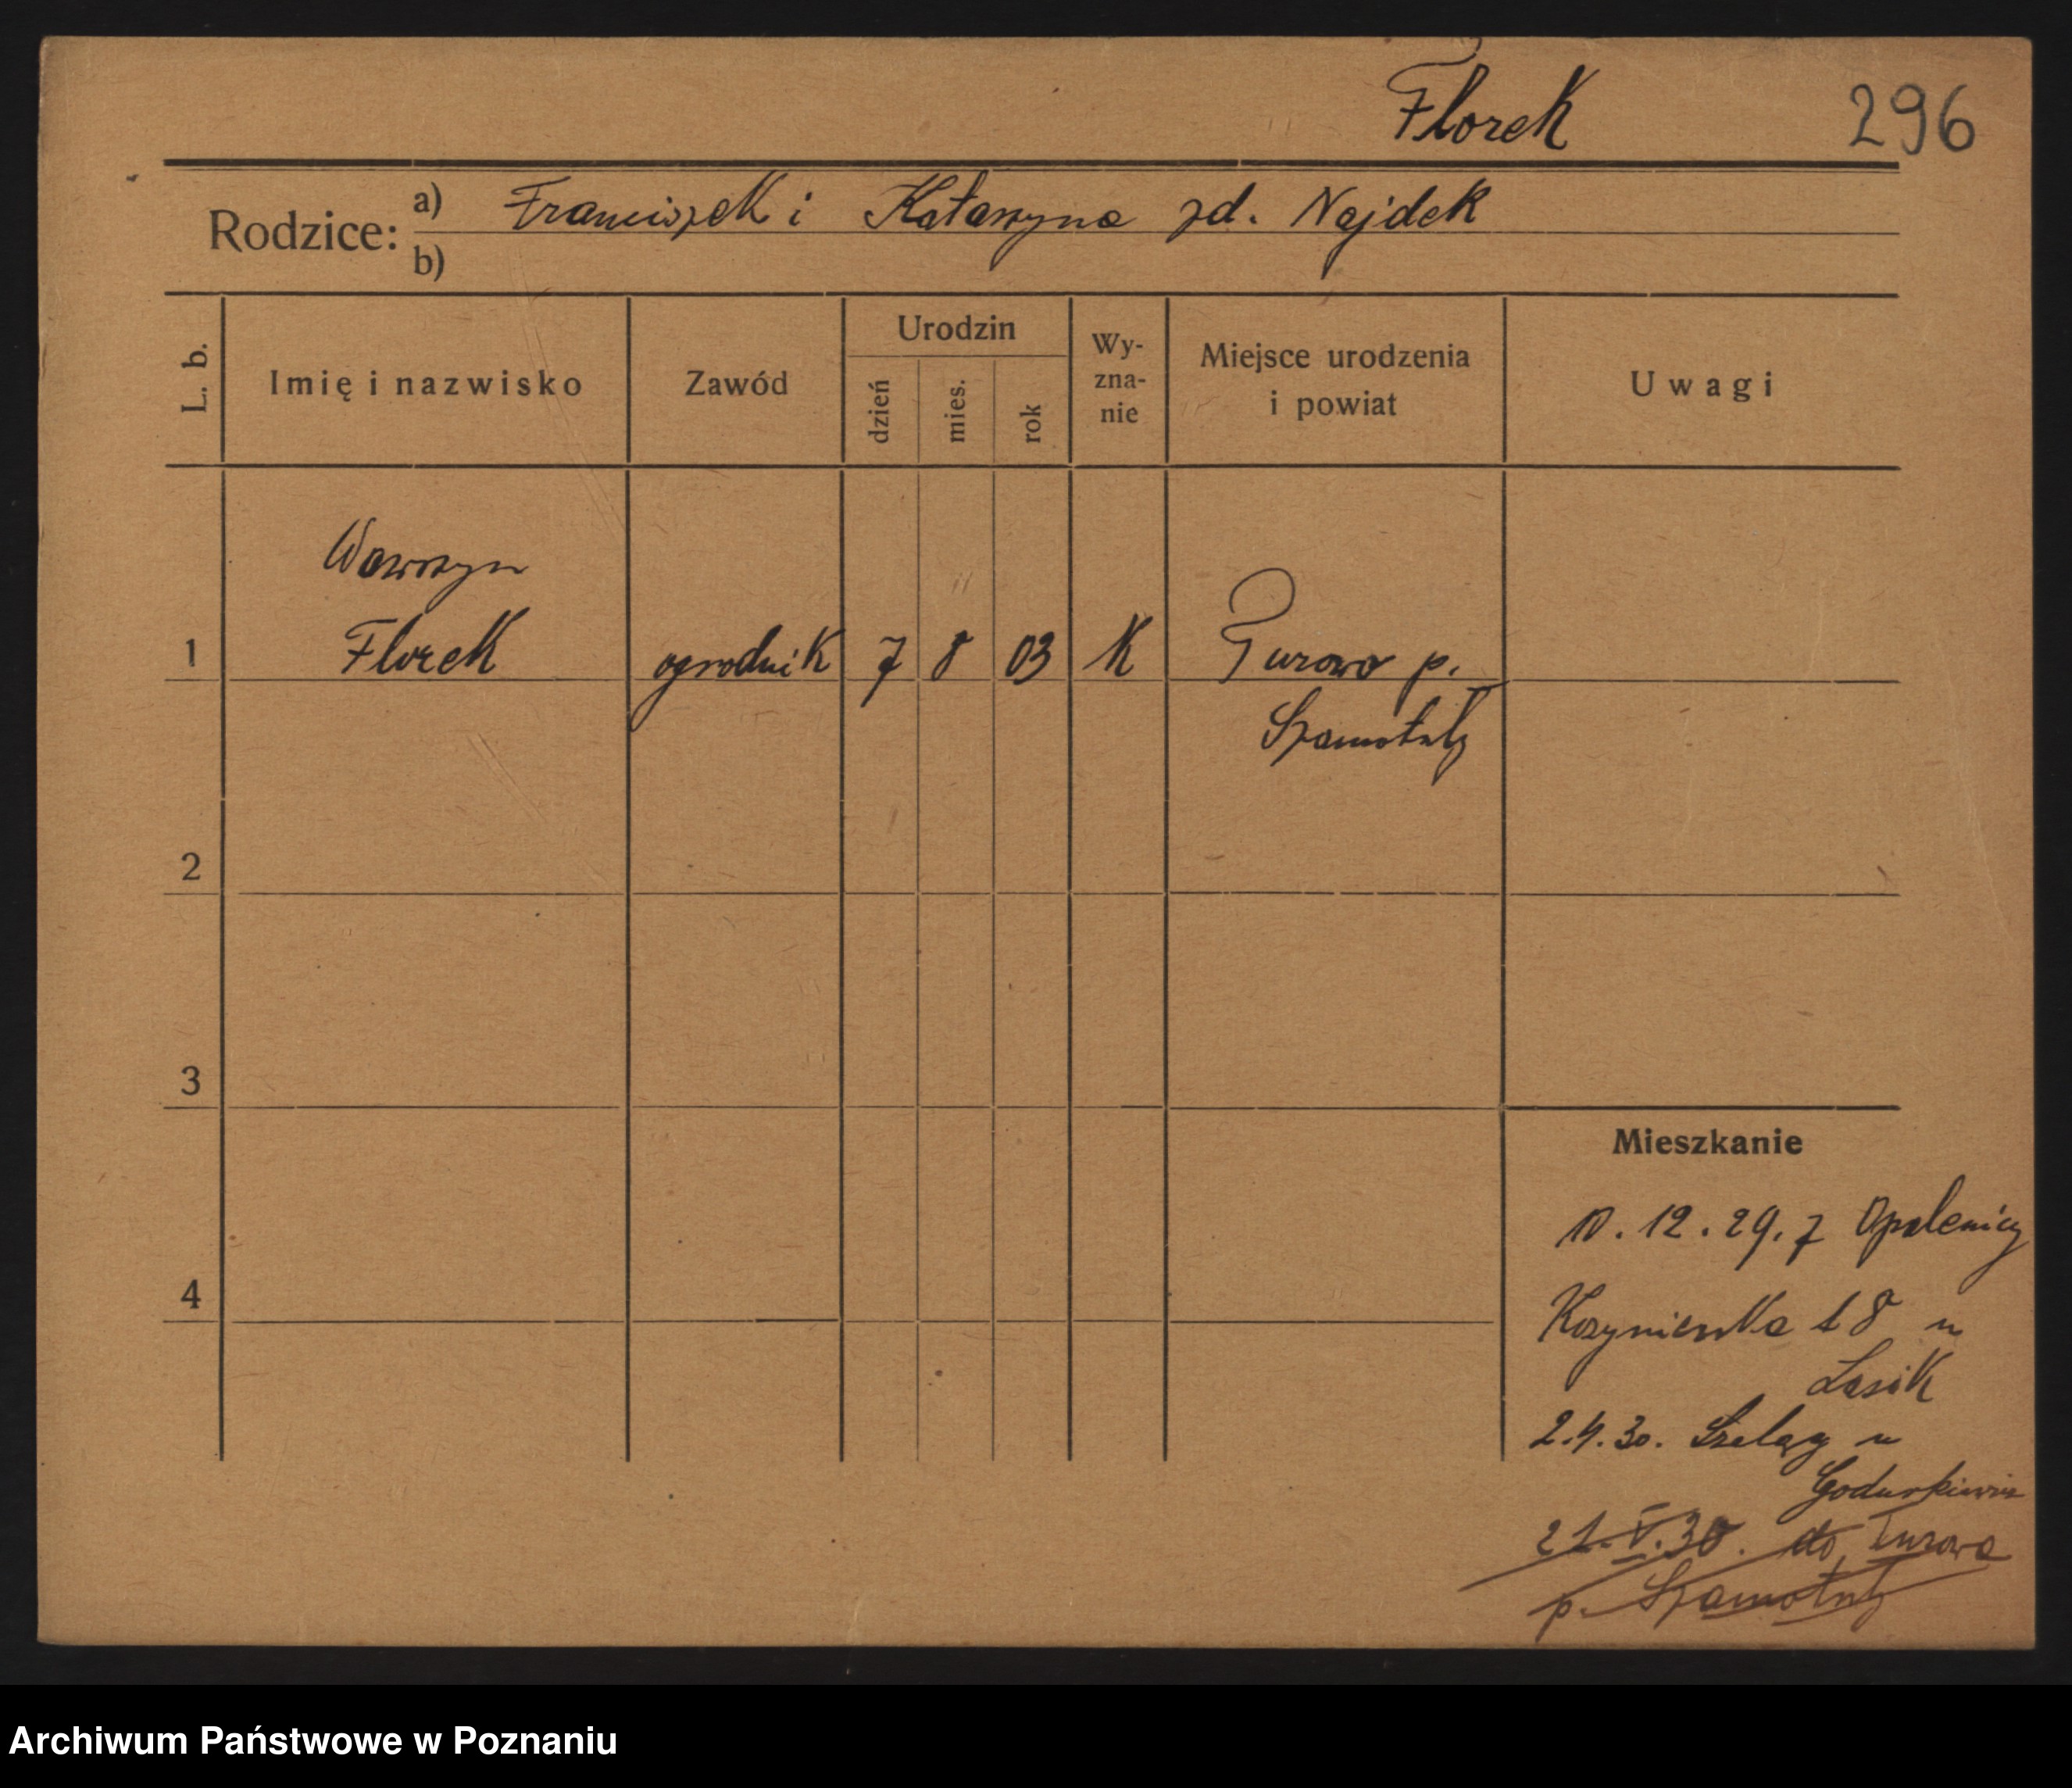 Florek
296
Rodzice:
a) Franciszek i Katarzyna zd. Najdek
b)
L. b.
Imię i nazwisko
Zawód
Urodzin
dzień
mies.
rok
Wy-
zna-
nie
Miejsce urodzenia
i powiat
Uwagi
Wawrzyn
1 Florek ogrodnik 7 8 03 K Turowo p.
Szamotuły
2
3
Mieszkanie
10.12.29. z Opalenicy
4
18 u
Lasik
2.4.30. Szeląg u
21.V.30. do Turowa
p. Szamotuły
Archiwum Państwowe w Poznaniu